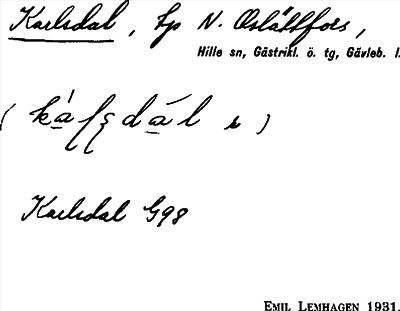 Karlsdal, Lp N. Oslättfors,
Hille sn, Gästrikl. ö. tg, Gävleb. l.
Karlsdal G98
EMIL LEMHAGEN 1931.